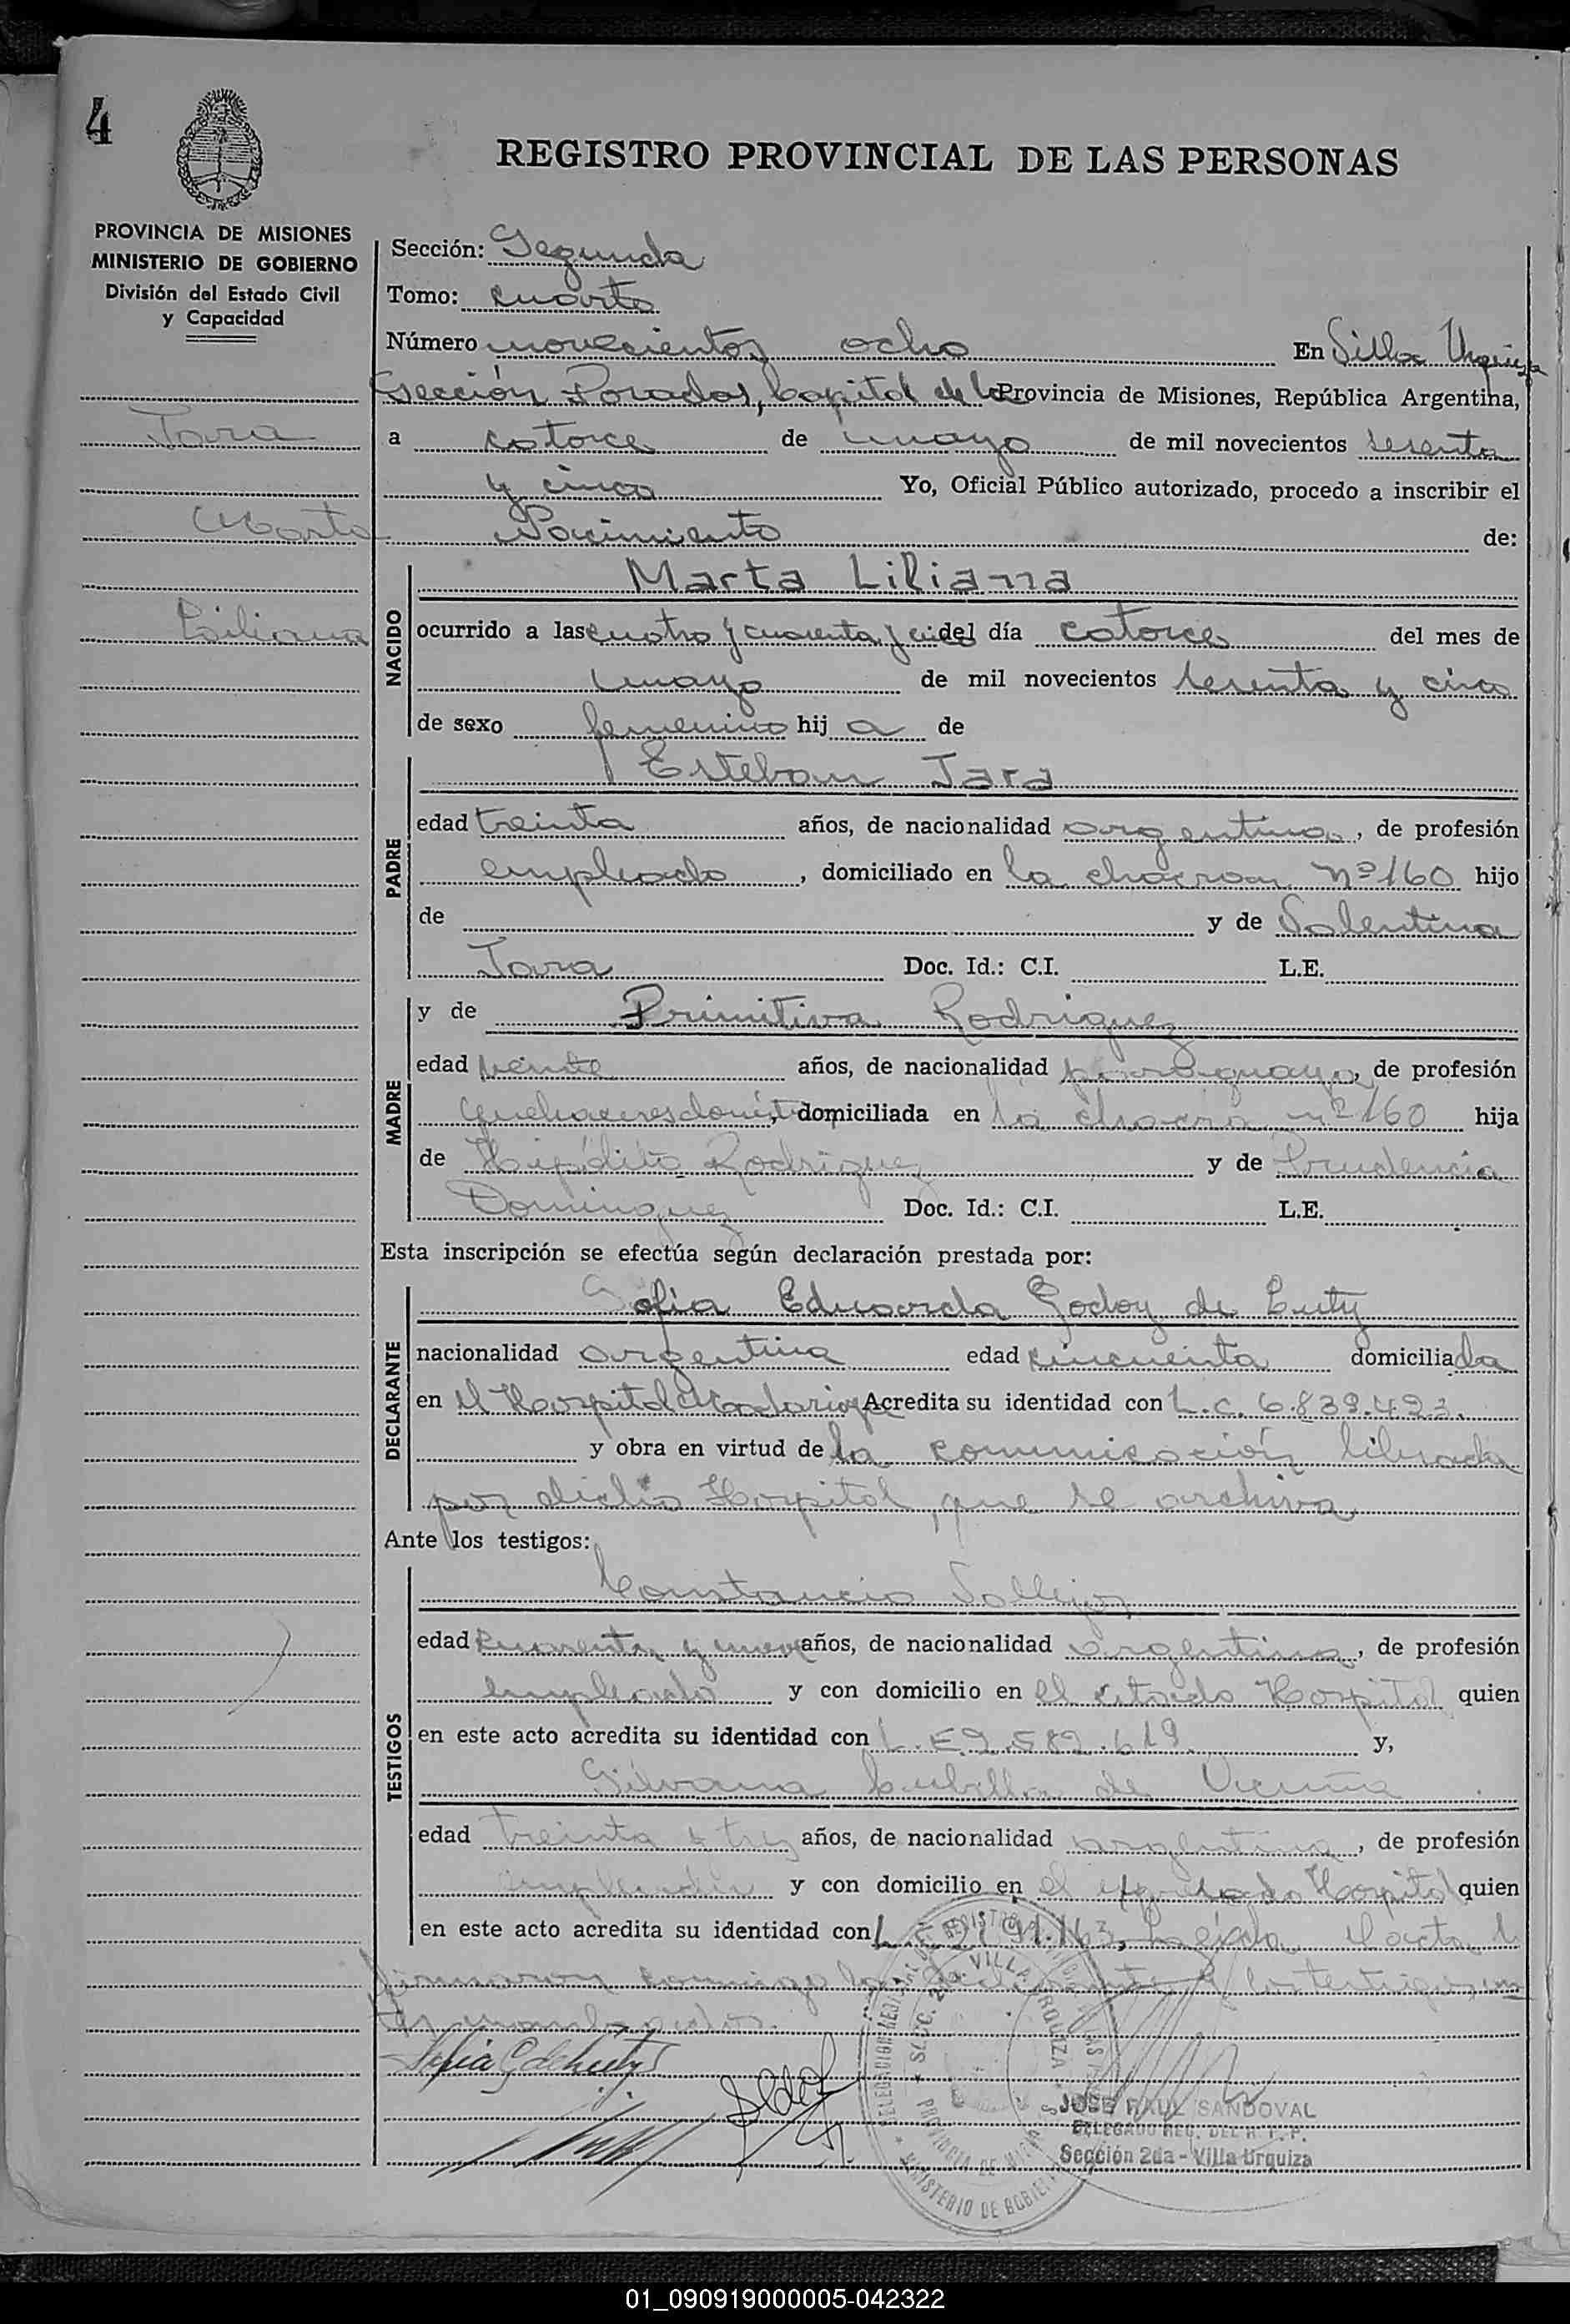 4
REGISTRO PROVINCIAL DE LAS PERSONAS
PROVINCIA DE MISIONES
MINISTERIO DE GOBIERNO
División del Estado Civil
y Capacidad
Jara
Marta
Liliana
Sección: Segunda
Tomo: cuarto
Número novecientos ocho En Villa Urquiza
Sección Posadas, Capital de la Provincia de Misiones, República Argentina,
a catorce de mayo de mil novecientos sesenta
y cinco Yo, Oficial Público autorizado, procedo a inscribir el
Nacimiento de:
NACIDO
Marta Liliana
ocurrido a las cuatro y cuarenta y del día catorce del mes de
mayo de mil novecientos sesenta y cinco
de sexo femenino hij a de
PADRE
Esteban Jara
edad treinta años, de nacionalidad argentina, de profesión
empleado, domiciliado en la chacra nº 160 hijo
de y de Valentina
Jara Doc. Id.: C.I. L.E.
MADRE
y de Primitiva Rodriguez
edad veinte años, de nacionalidad paraguaya, de profesión
quehaceres domést, domiciliada en la chacra nº 160 hija
de Hipólito Rodriguez y de Prudencia
Dominguez Doc. Id.: C.I. L.E.
Esta inscripción se efectúa según declaración prestada por:
DECLARANTE
Sofia Eduarda Godoy de
nacionalidad argentina edad cincuenta domiciliada
en el Hospital Madariaga Acredita su identidad con L.C. 6.839.423.
y obra en virtud de la comunicación librada
por dicho Hospital, que se archiva
Ante los testigos:
TESTIGOS
Constancio Vallejos
edad cuarenta y nueve años, de nacionalidad argentina, de profesión
empleado y con domicilio en el citado Hospital quien
en este acto acredita su identidad con L.E. y,
Silvana Cubilla de Vicuña
edad treinta y tres años, de nacionalidad argentina, de profesión
empleada y con domicilio en el expresado Hospital quien
en este acto acredita su identidad con Leida el acta la
firmaron conmigo la declarante y los testigos
nombrados.
DELEGACION
SECC. 2da. VILLA URQUIZA
PROVINCIA DE MISIONES
MINISTERIO DE GOBIERNO
JOSE RAUL SANDOVAL
DELEGADO REG. DEL R. P. P.
Sección 2da - Villa Urquiza
01_090919000005-042322